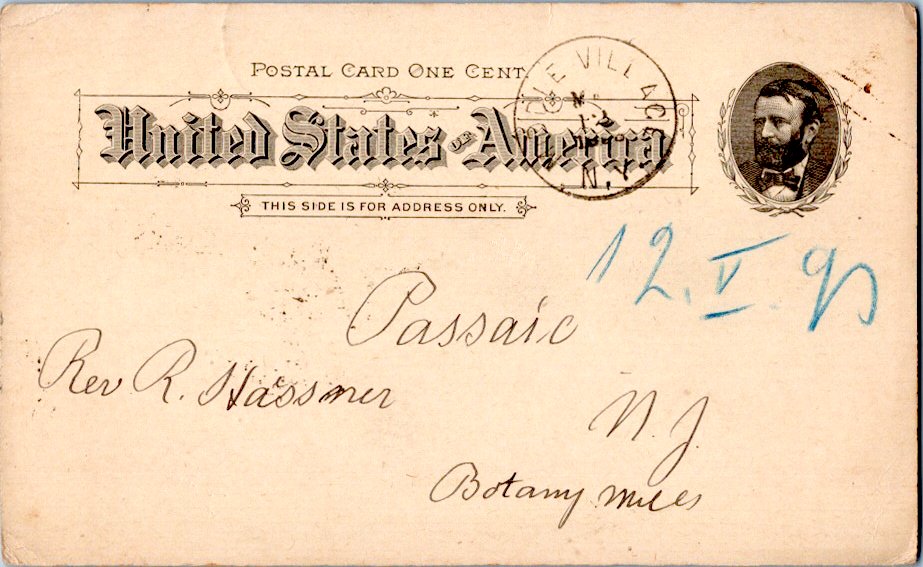 POSTAL CARD ONE CENT
United States of America
THIS SIDE IS FOR ADDRESS ONLY.
VILLAGE
N.Y.
12. V. 93
Passaic
Rev R. Hassner
N. J.
Botany Mills